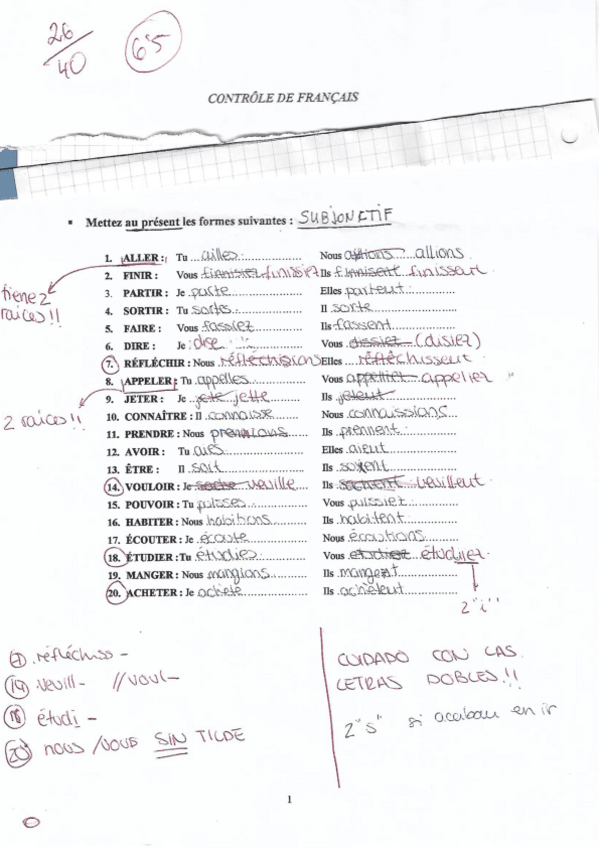 26
40
6'5
CONTRÔLE DE FRANÇAIS
Mettez au présent les formes suivantes : SUBJONCTIF
1. ALLER : Tu ailles Nous allions
2. FINIR : Vous finissiez Ils finissent finissent
3. PARTIR : Je parte Elles partent
4. SORTIR : Tu sortes Il sorte
5. FAIRE : Vous fassiez Ils fassent
6. DIRE : Je dise Vous dissiez (disiez)
7. RÉFLÉCHIR : Nous réfléchissions Elles réfléchissent
8. APPELER : Tu appelles Vous appelliez appeliez
9. JETER : Je jete jette Ils jetent
10. CONNAÎTRE : Il connaisse Nous connaussions
11. PRENDRE : Nous prenions Ils prennent
12. AVOIR : Tu aies Elles aient
13. ÊTRE : Il soit Ils soient
14. VOULOIR : Je veuille Ils veuillent
15. POUVOIR : Tu puisses Vous puissiez
16. HABITER : Nous habitions Ils habitent
17. ÉCOUTER : Je écoute Nous écoutions
18. ÉTUDIER : Tu étudies Vous etudiez étudiiez
19. MANGER : Nous mangions Ils mangent
20. ACHETER : Je achète Ils achètent
tiene 2
raices!!
2 raices!!
2 "i"
7 réfléchiss-
14 veuill- // voul-
18 étudi-
20 nous/vous SIN TILDE
CUIDADO CON LAS
LETRAS DOBLES!!
2 "s" si acaban en ir
1